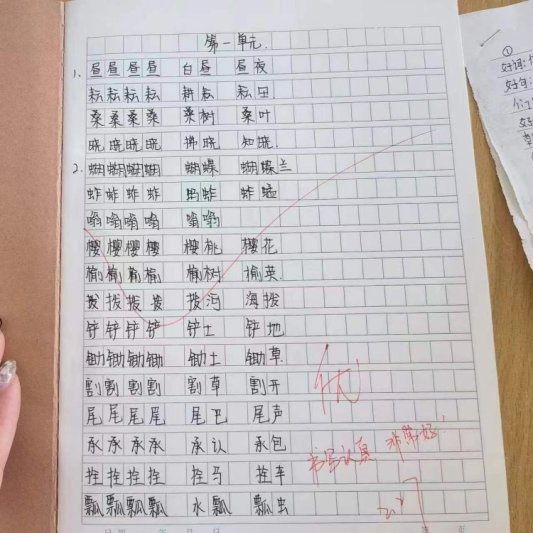 第一单元.
1、昼昼昼昼 白昼 昼夜
耘耘耘耘 耕耘 耘田
桑桑桑桑 桑树 桑叶
晓晓晓晓 拂晓 知晓.
2、蝴蝴蝴蝴 蝴蝶 蝴蝶兰
蚱蚱蚱蚱 蚂蚱 蚱蜢
嗡嗡嗡嗡 嗡嗡
樱樱樱樱 樱桃 樱花
榆榆榆榆 榆树 榆英.
拨拨拨拨 拨泻 海拨
铲铲铲铲 铲土 铲地
锄锄锄锄 锄土 锄草.
割割割割 割草 割开
尾尾尾尾 尾巴 尾声
承承承承 承认 承包
拴拴拴拴 拴马 拴车
瓢瓢瓢瓢 水瓢 瓢虫
优
书写认真 非常好!
①
好词:
好句: